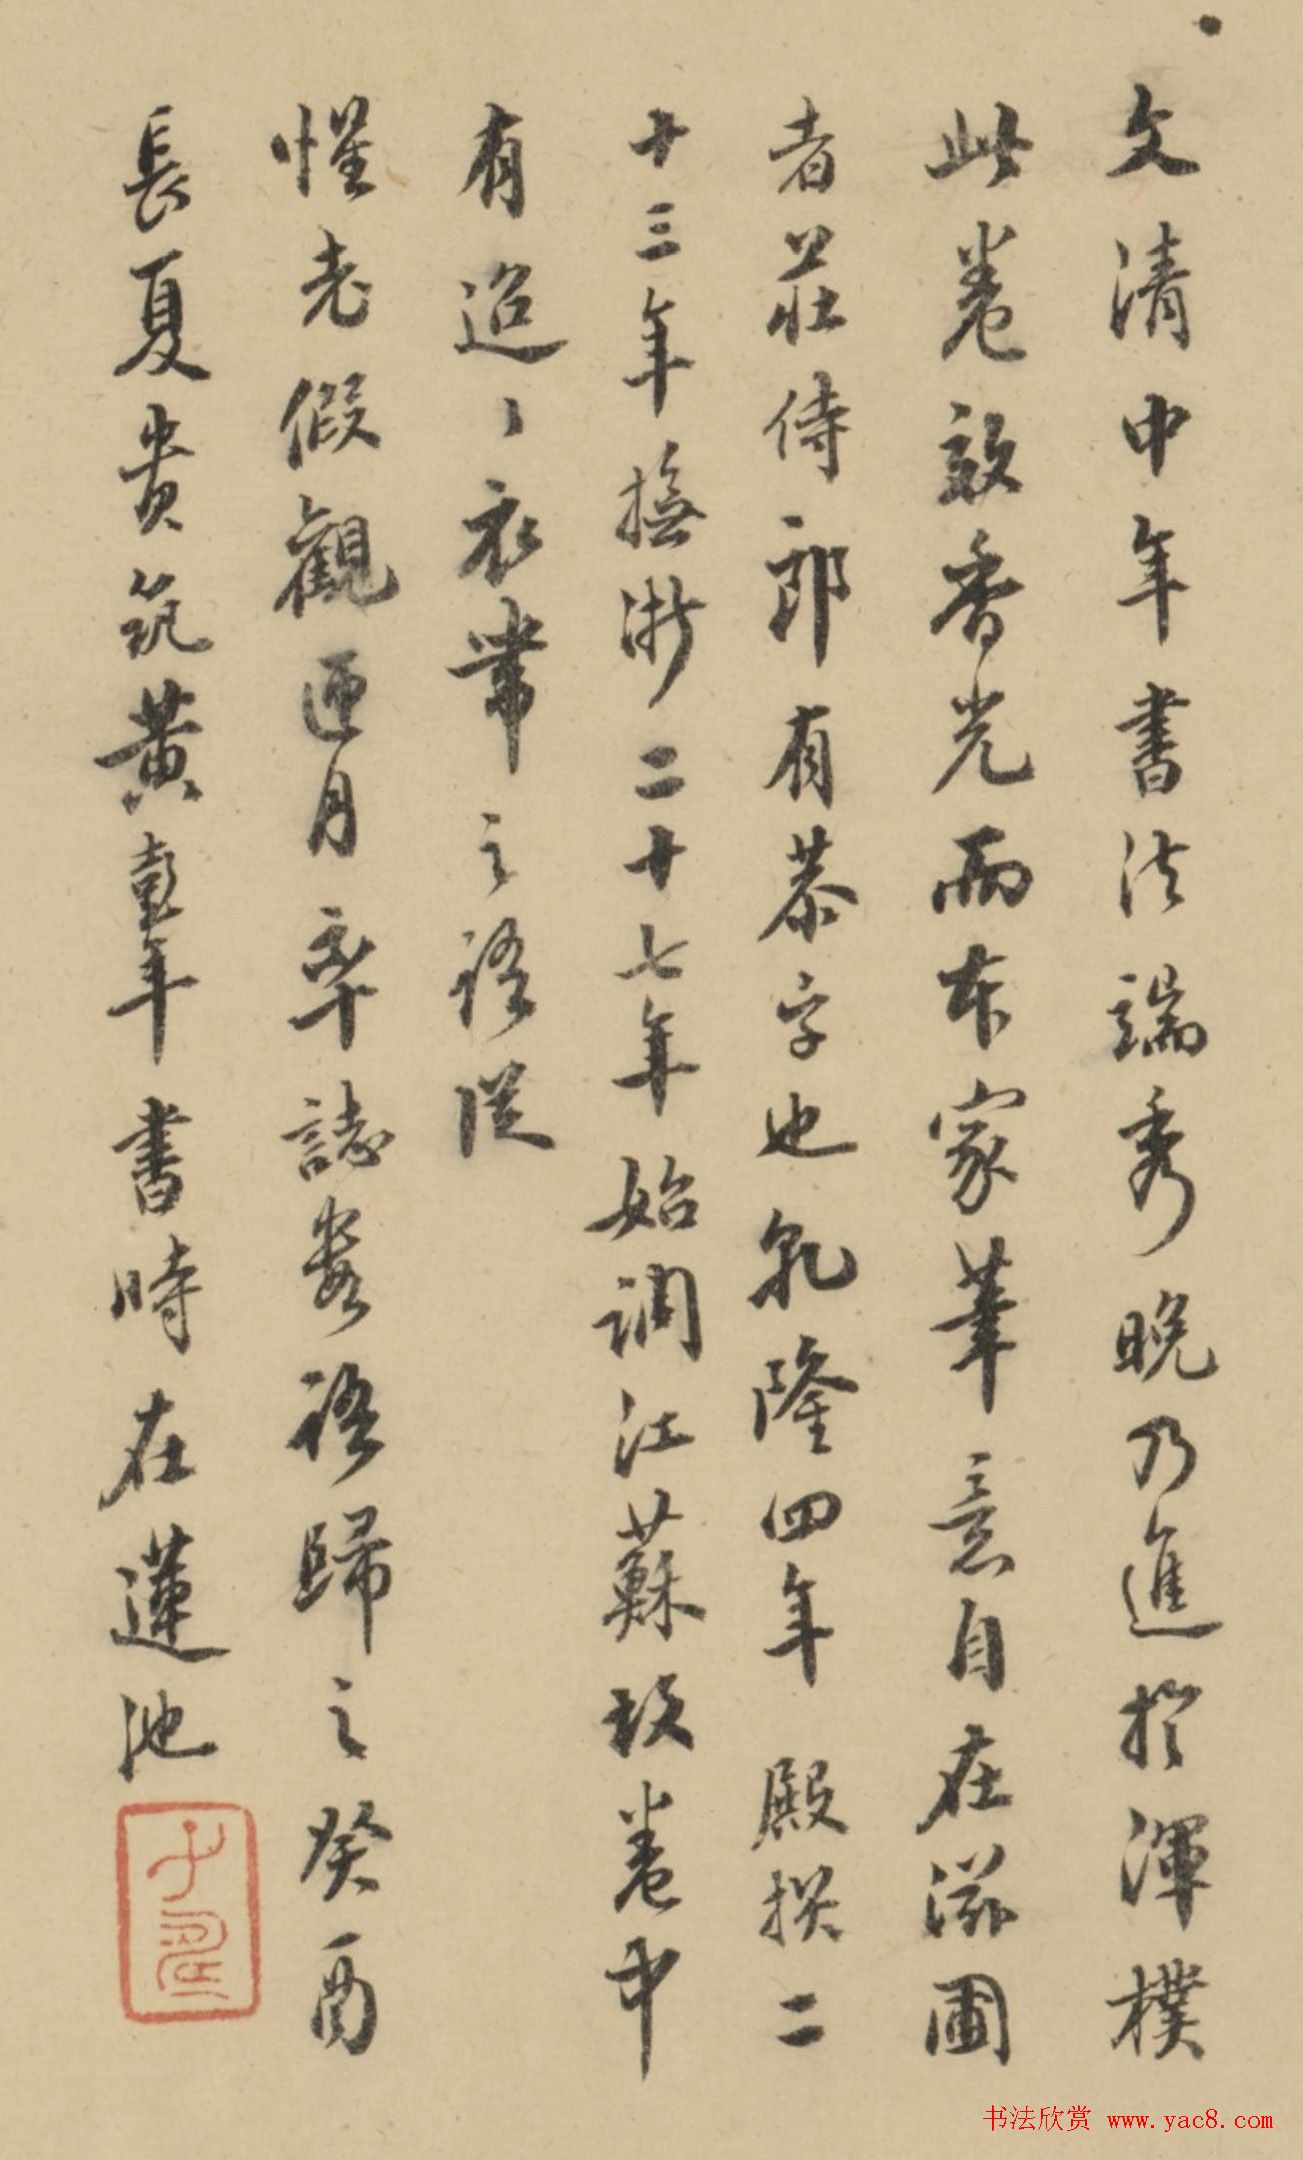 文清中年書法端秀晚乃進於渾樸
此卷效香光而本家筆意自在滋圃
者莊侍郎有恭字也乳隆四年殿撰二
十三年撫浙二十七年始調江蘇故卷中
有迢〻衣帶之語從
惺老假觀匝月率誌數語歸之癸酉
長夏貴筑黃彭年書時在蓮池
书法欣赏 www.yac8.com